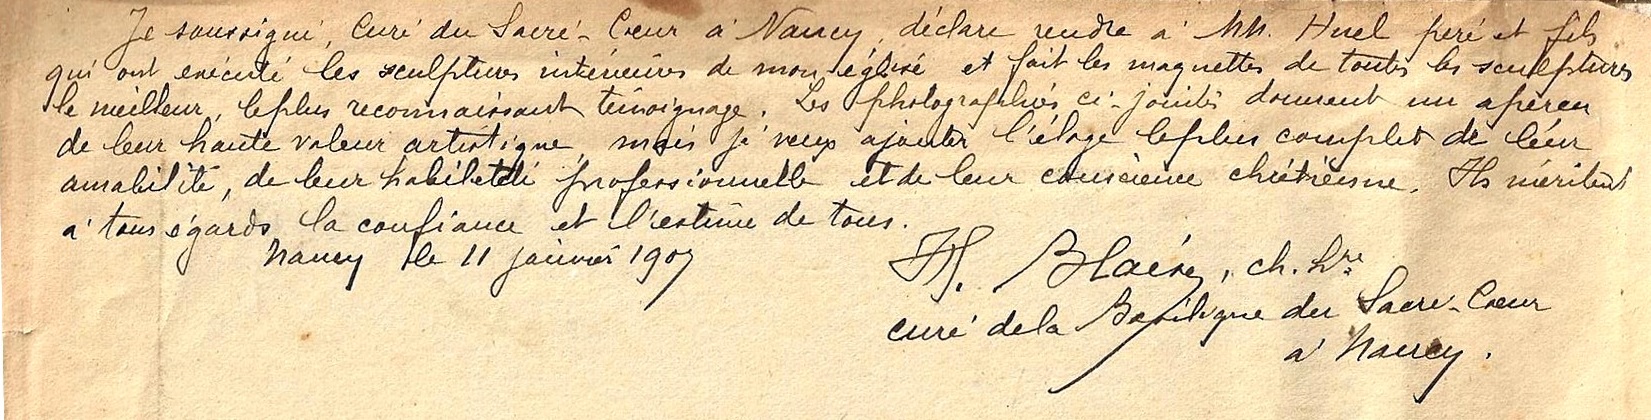 Je soussigné, Curé du Sacré-Cœur à Nancy, déclare rendre à MM. Huel père et fils
qui ont exécuté les sculptures intérieures de mon église et fait les maquettes de toutes les sculptures
le meilleur, le plus reconnaissant témoignage. Les photographies ci-jointes donnent un aperçu
de leur haute valeur artistique, mais je veux ajouter l'éloge le plus complet de leur
amabilité, de leur habileté professionnelle et de leur conscience chrétienne. Ils méritent
à tous égards la confiance et l'estime de tous.
Nancy le 11 janvier 1907
H. Blaise, ch. hre
curé de la Basilique du Sacré-Cœur
à Nancy.